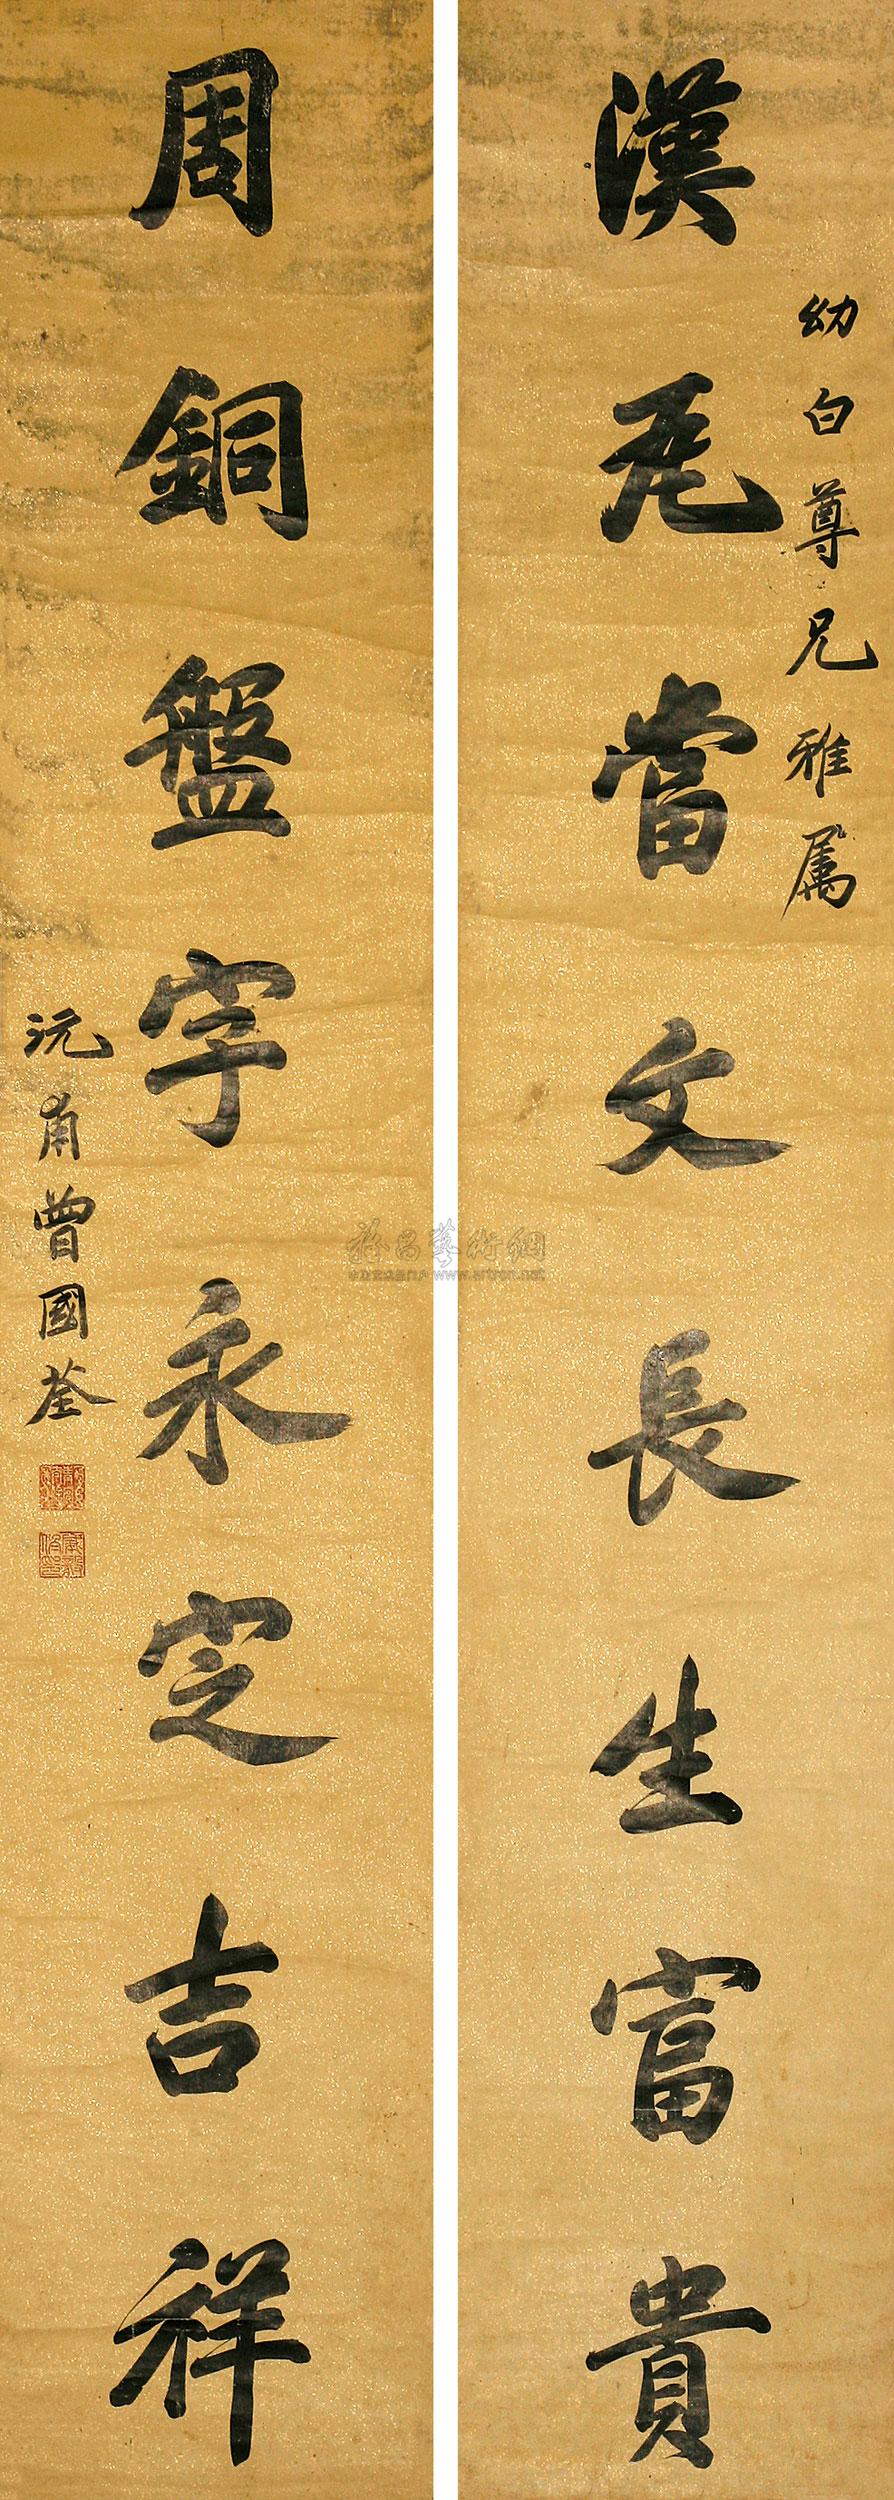 漢瓦當文長生富貴
幼白尊兄雅属
周銅盤字永定吉祥
沅甫曾國荃
雅昌藝術網
www.artron.net